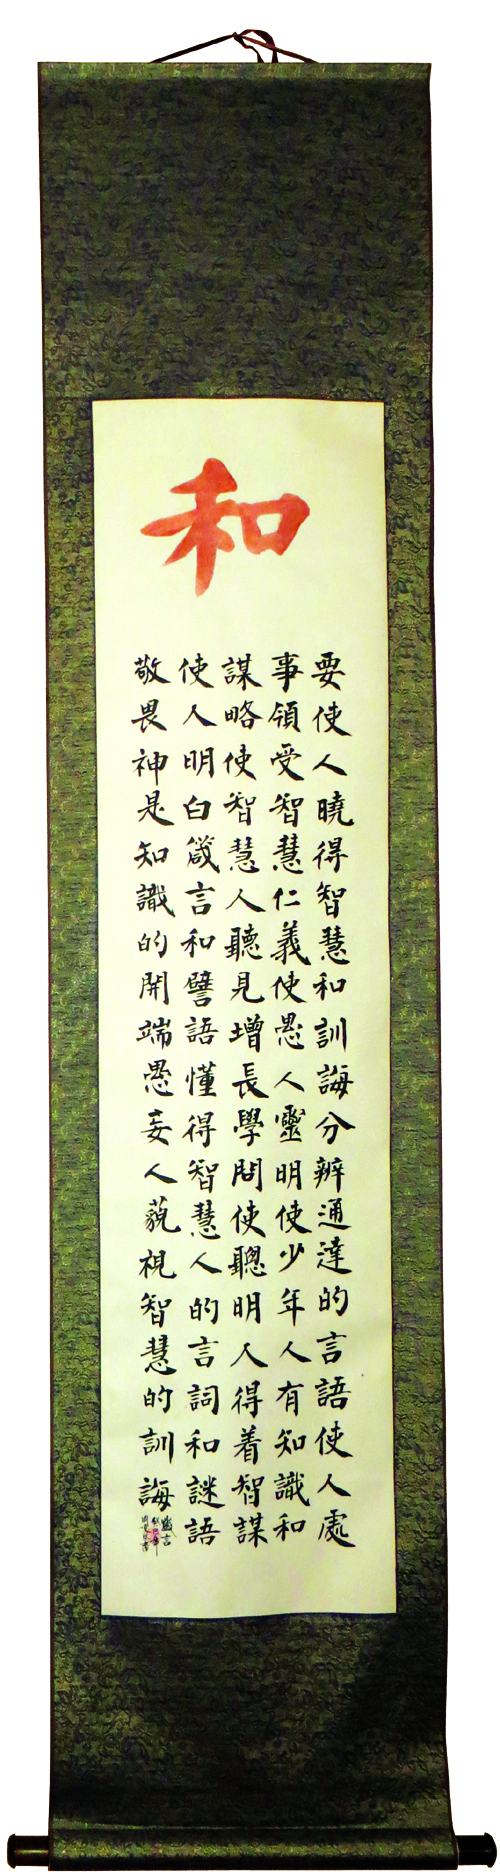 和
要使人曉得智慧和訓誨分辨通達的言語使人處
事領受智慧仁義使愚人靈明使少年人有知識和
謀略使智慧人聽見增長學問使聰明人得着智謀
使人明白箴言和譬語懂得智慧人的言詞和謎語
敬畏神是知識的開端愚妄人藐視智慧的訓誨
箴言